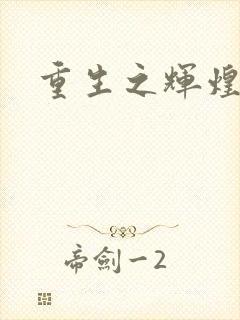 重生之輝煌
帝劍一2